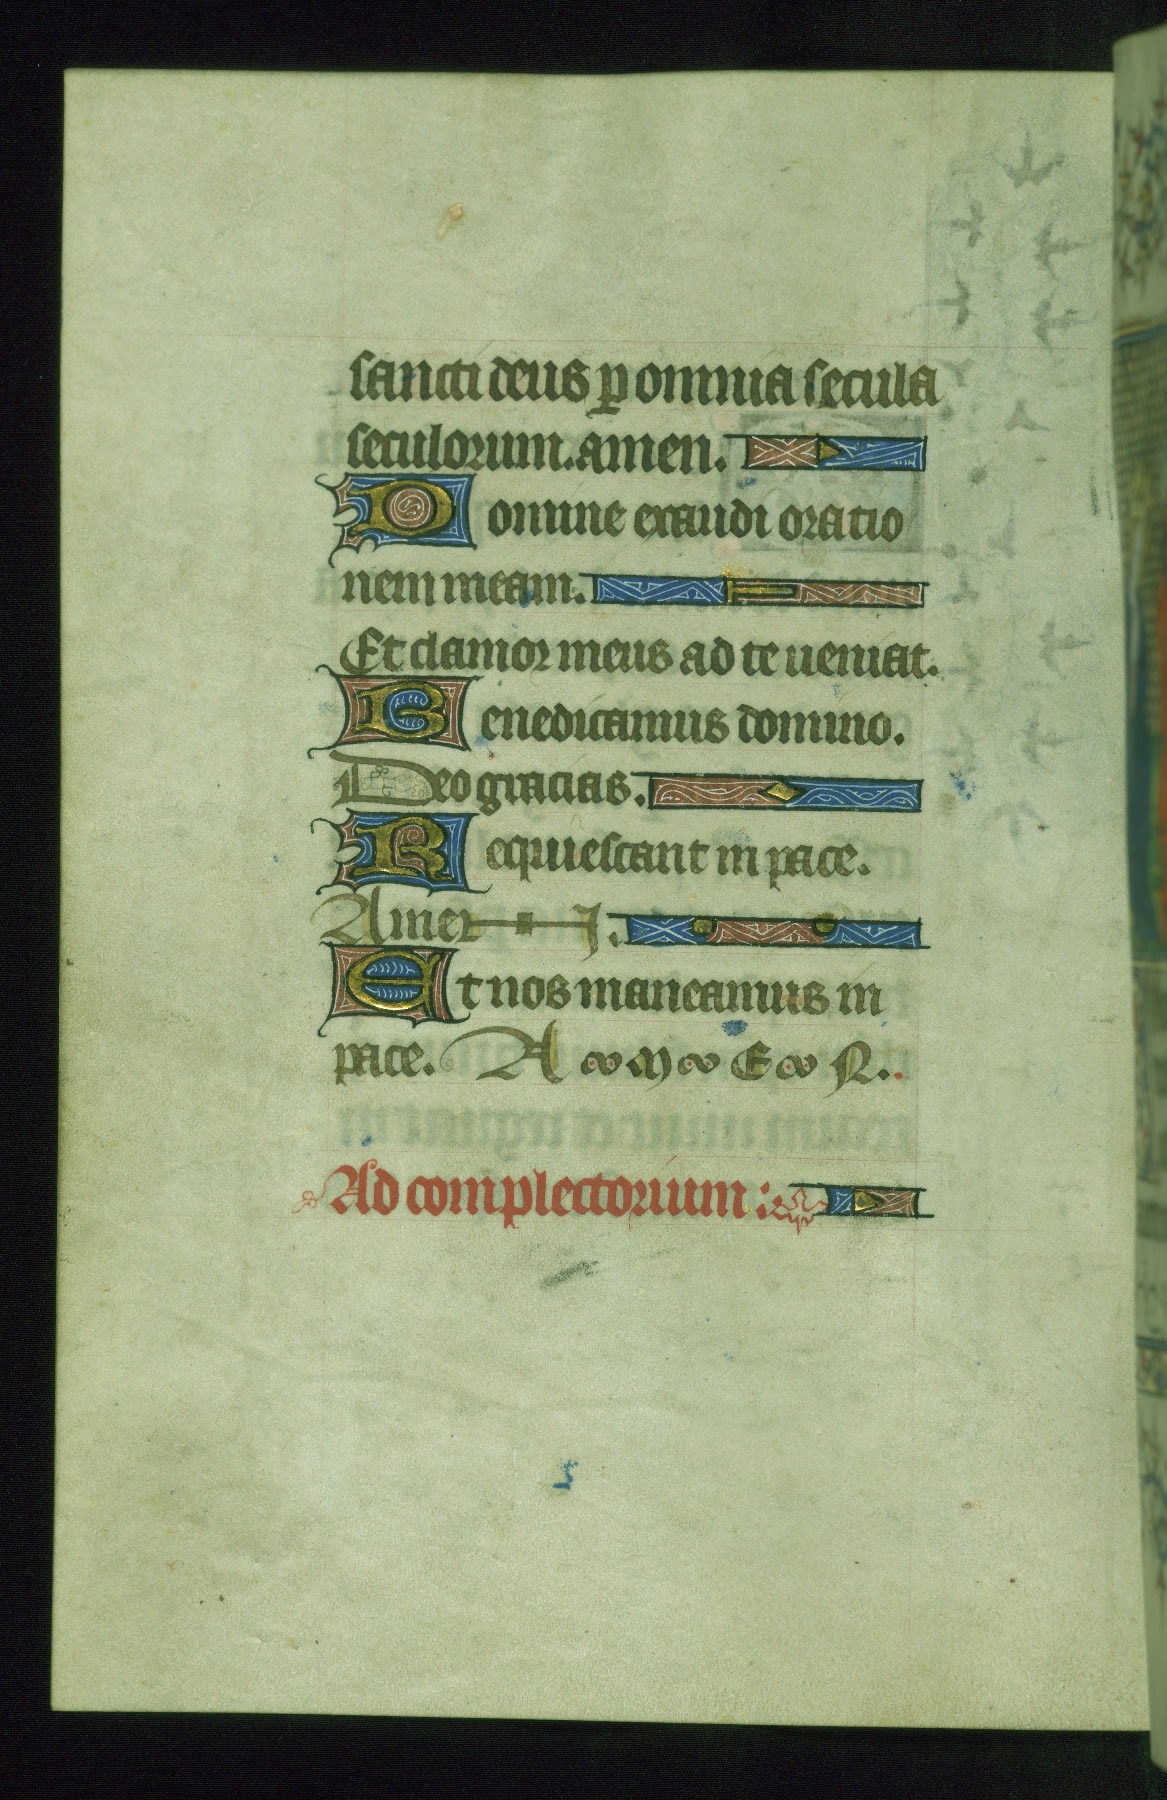 sancti deus p omnia secula
seculorum. amen.
Domine exaudi oratio
nem meam.
Et clamor meus ad te ueniat.
Benedicamus domino.
Deo gracias.
Requiescant in pace.
Amen.
Et nos maneamus in
pace. AMEN.
Ad complectorium :